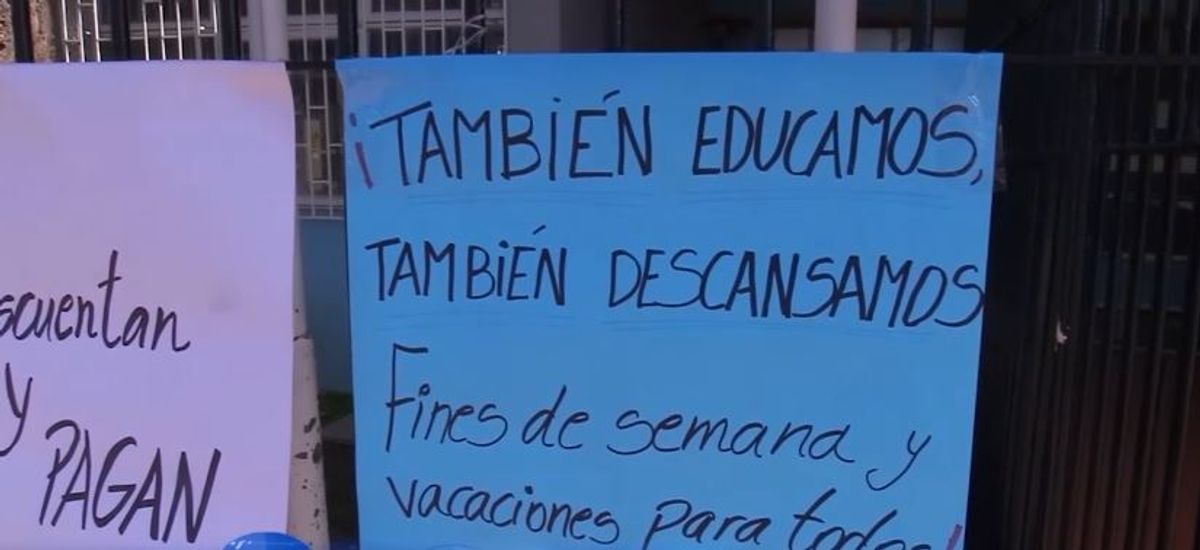 scuentan
y
PAGAN
¡TAMBIÉN EDUCAMOS,
TAMBIÉN DESCANSAMOS
Fines de semana y
vacaciones para todos!